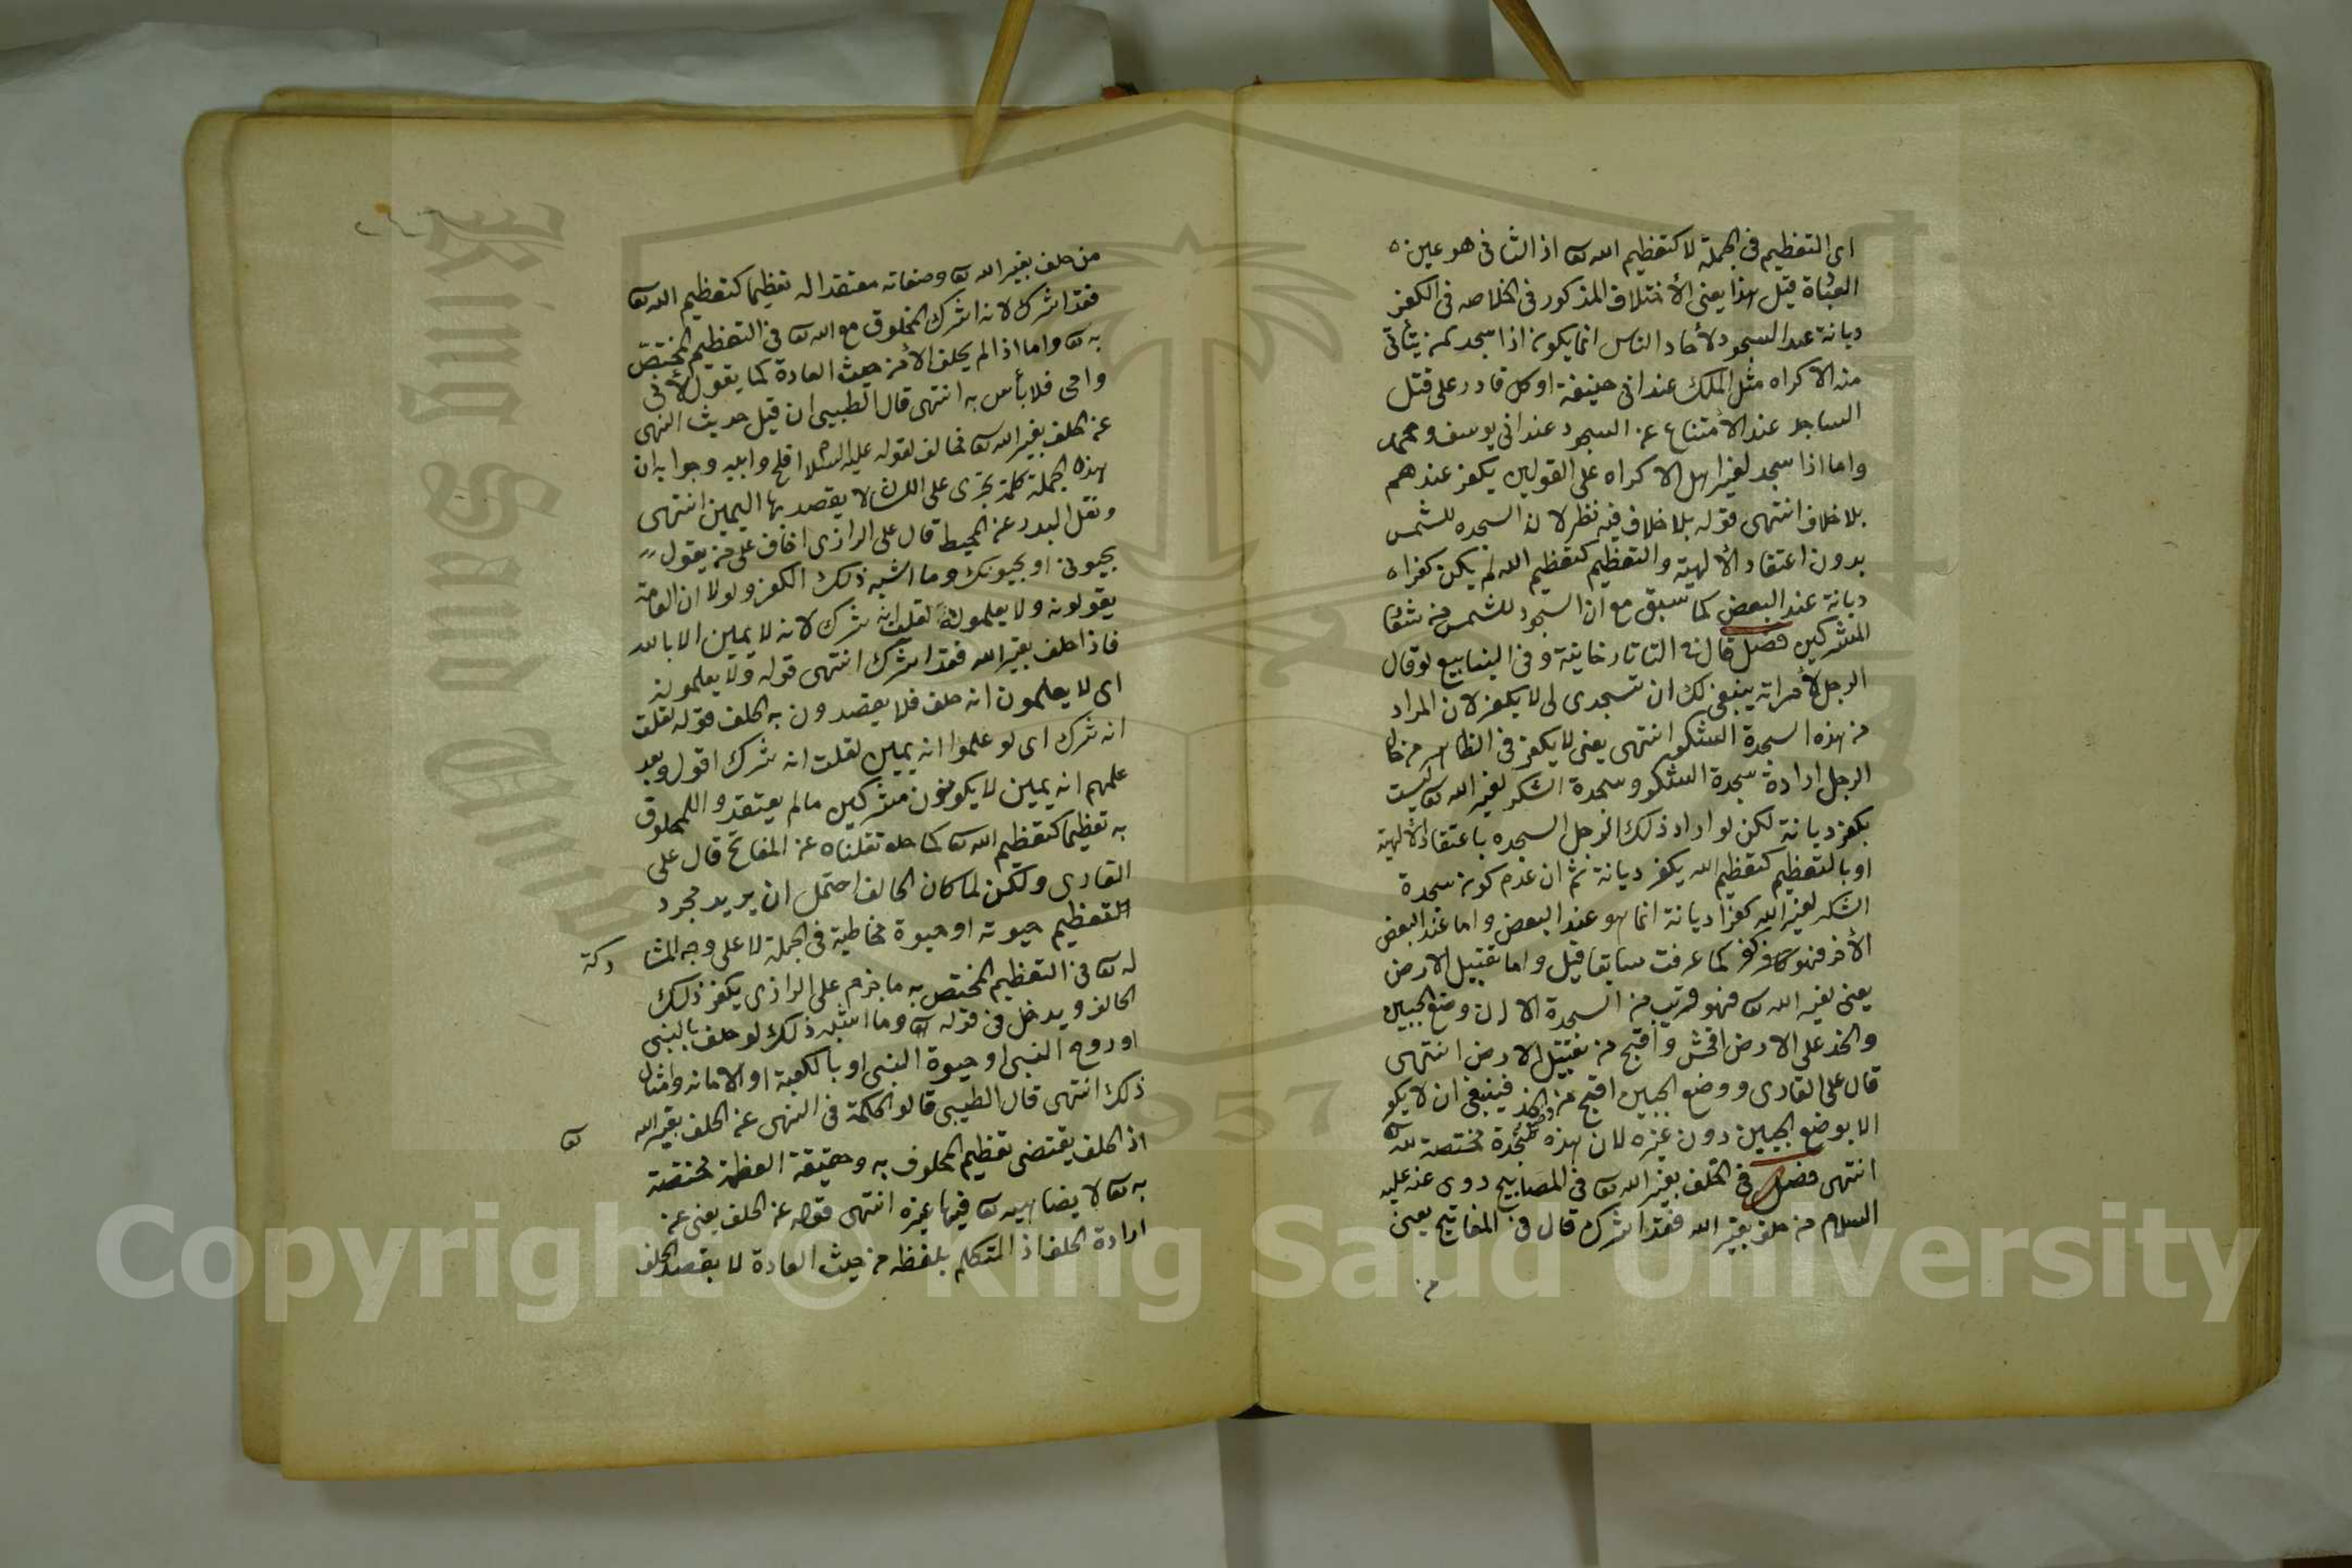 اى التعظيم فى الجملة لا كتعظيم الله تع اذ الثانى هو عين
العبادة قيل هذا يعنى الأختلاف المذكور فى الخلاصه فى الكفر
ديانة عند السجود لأحاد الناس انما يكون اذا سجد لمن يتأتى
منه الاكراه مثل الملك عند ابى حنيفة او كل قادر على قتل
الساجد عند الأمتناع عن السجود عند ابى يوسف ومحمد
واما اذا سجد لغير اهل الاكراه على القولين يكفر عندهم
بلا خلاف انتهى قوله بلا خلاف فيه نظر لان السجده للشمس
بدون اعتقاد الألهية والتعظيم كتعظيم الله لم يكن كفرا
ديانة عند البعض كما سبق مع ان السجود للشمس من شعار
المشركين فصل قال فى التاتارخانية وفى الينابيع لو قال
الرجل لأمراته ينبغى لك ان تسجدى لى لا يكفر لان المراد
من هذه السجدة الشكر انتهى يعنى لا يكفر فى الظاهر من حال
الرجل ارادة سجدة الشكر وسجدة الشكر لغير الله تع ليست
بكفر ديانة لكن لو اراد ذلك الرجل السجده باعتقاد الألهية
او بالتعظيم كتعظيم الله يكفر ديانة ثم ان عدم كون سجدة
الشكر لغير الله كفرا ديانة انما هو عند البعض واما عند البعض
الأخر فهو كفر كما عرفت سابقا قيل واما تقبيل الارض
يعنى لغير الله تع فهو قريب من السجدة الا ان وضع الجبين
والخد على الارض افحش واقبح من تقبيل الارض انتهى
قال على القارى ووضع الجبين اقبح من وضع الخد فينبغى ان لا يكفر
الا بوضع الجبين دون غيره لان هذه سجدة مختصة لله تع
انتهى فصل فى الحلف بغير الله تع فى المصابيح روى عنه عليه
السلام من حلف بغير الله فقد اشرك قال فى المفاتيح يعنى
من
من حلف بغير الله تع وصفاته معتقدا له تعظيما كتعظيم الله تع
فقد اشرك لانه اشرك المخلوق مع الله تع فى التعظيم المختص
به تع واما اذا لم يحلف الا من حيث العادة كما يقول لا وابى
وامى فلا بأس به انتهى قال الطيبى ان قيل حديث النهى
عن الحلف بغير الله تع مخالف لقوله عليه السلام افلح وابيه وجوابه ان
هذه الجملة كلمة تجرى على اللسان لا يقصد بها اليمين انتهى
ونقل البدر عن المحيط قال على الرازى اخاف على من يقول
بحيوتى او بحيوتك وما اشبه ذلك الكفر ولولا ان العامة
يقولونه ولا يعلمونه لقلت انه شرك لانه لا يمين الا بالله
فاذا حلف بغير الله فقد اشرك انتهى قوله ولا يعلمونه
اى لا يعلمون انه حلف فلا يقصدون به الحلف قوله لقلت
انه شرك اى لو علموا انه يمين لقلت انه شرك اقول وبعد
علمهم انه يمين لا يكونون مشركين مالم يعتقدوا المحلوف
به تعظيما كتعظيم الله تع كما نقلناه عن المفاتح قال على
القارى ولكن لما كان الحالف احتمل ان يريد مجرد
التعظيم حيوته او حيوة مخاطبه فى الجملة لا على وجه المشا
ركة
له تع فى التعظيم المختص به ما جزم على الرازى بكفر ذلك
الحالف ويدخل فى قوله وما اشبه ذلك لو حلف بالنبى
او روح النبى او حيوة النبى او بالكعبة او الامانه وامثال
ذلك انتهى قال الطيبى قالوا الحكمة فى النهى عن الحلف بغير الله
تع
اذ الحلف يقتضى تعظيم المحلوف به وحقيقة العظمة مختصة
به تع لا يضاهيه تع فيها غيره انتهى قوله عن الحلف يعنى عن
ارادة الحلف اذ المتكلم بلفظه من حيث العادة لا يقصد الحلف
King Saud University
1957
Copyright © King Saud University